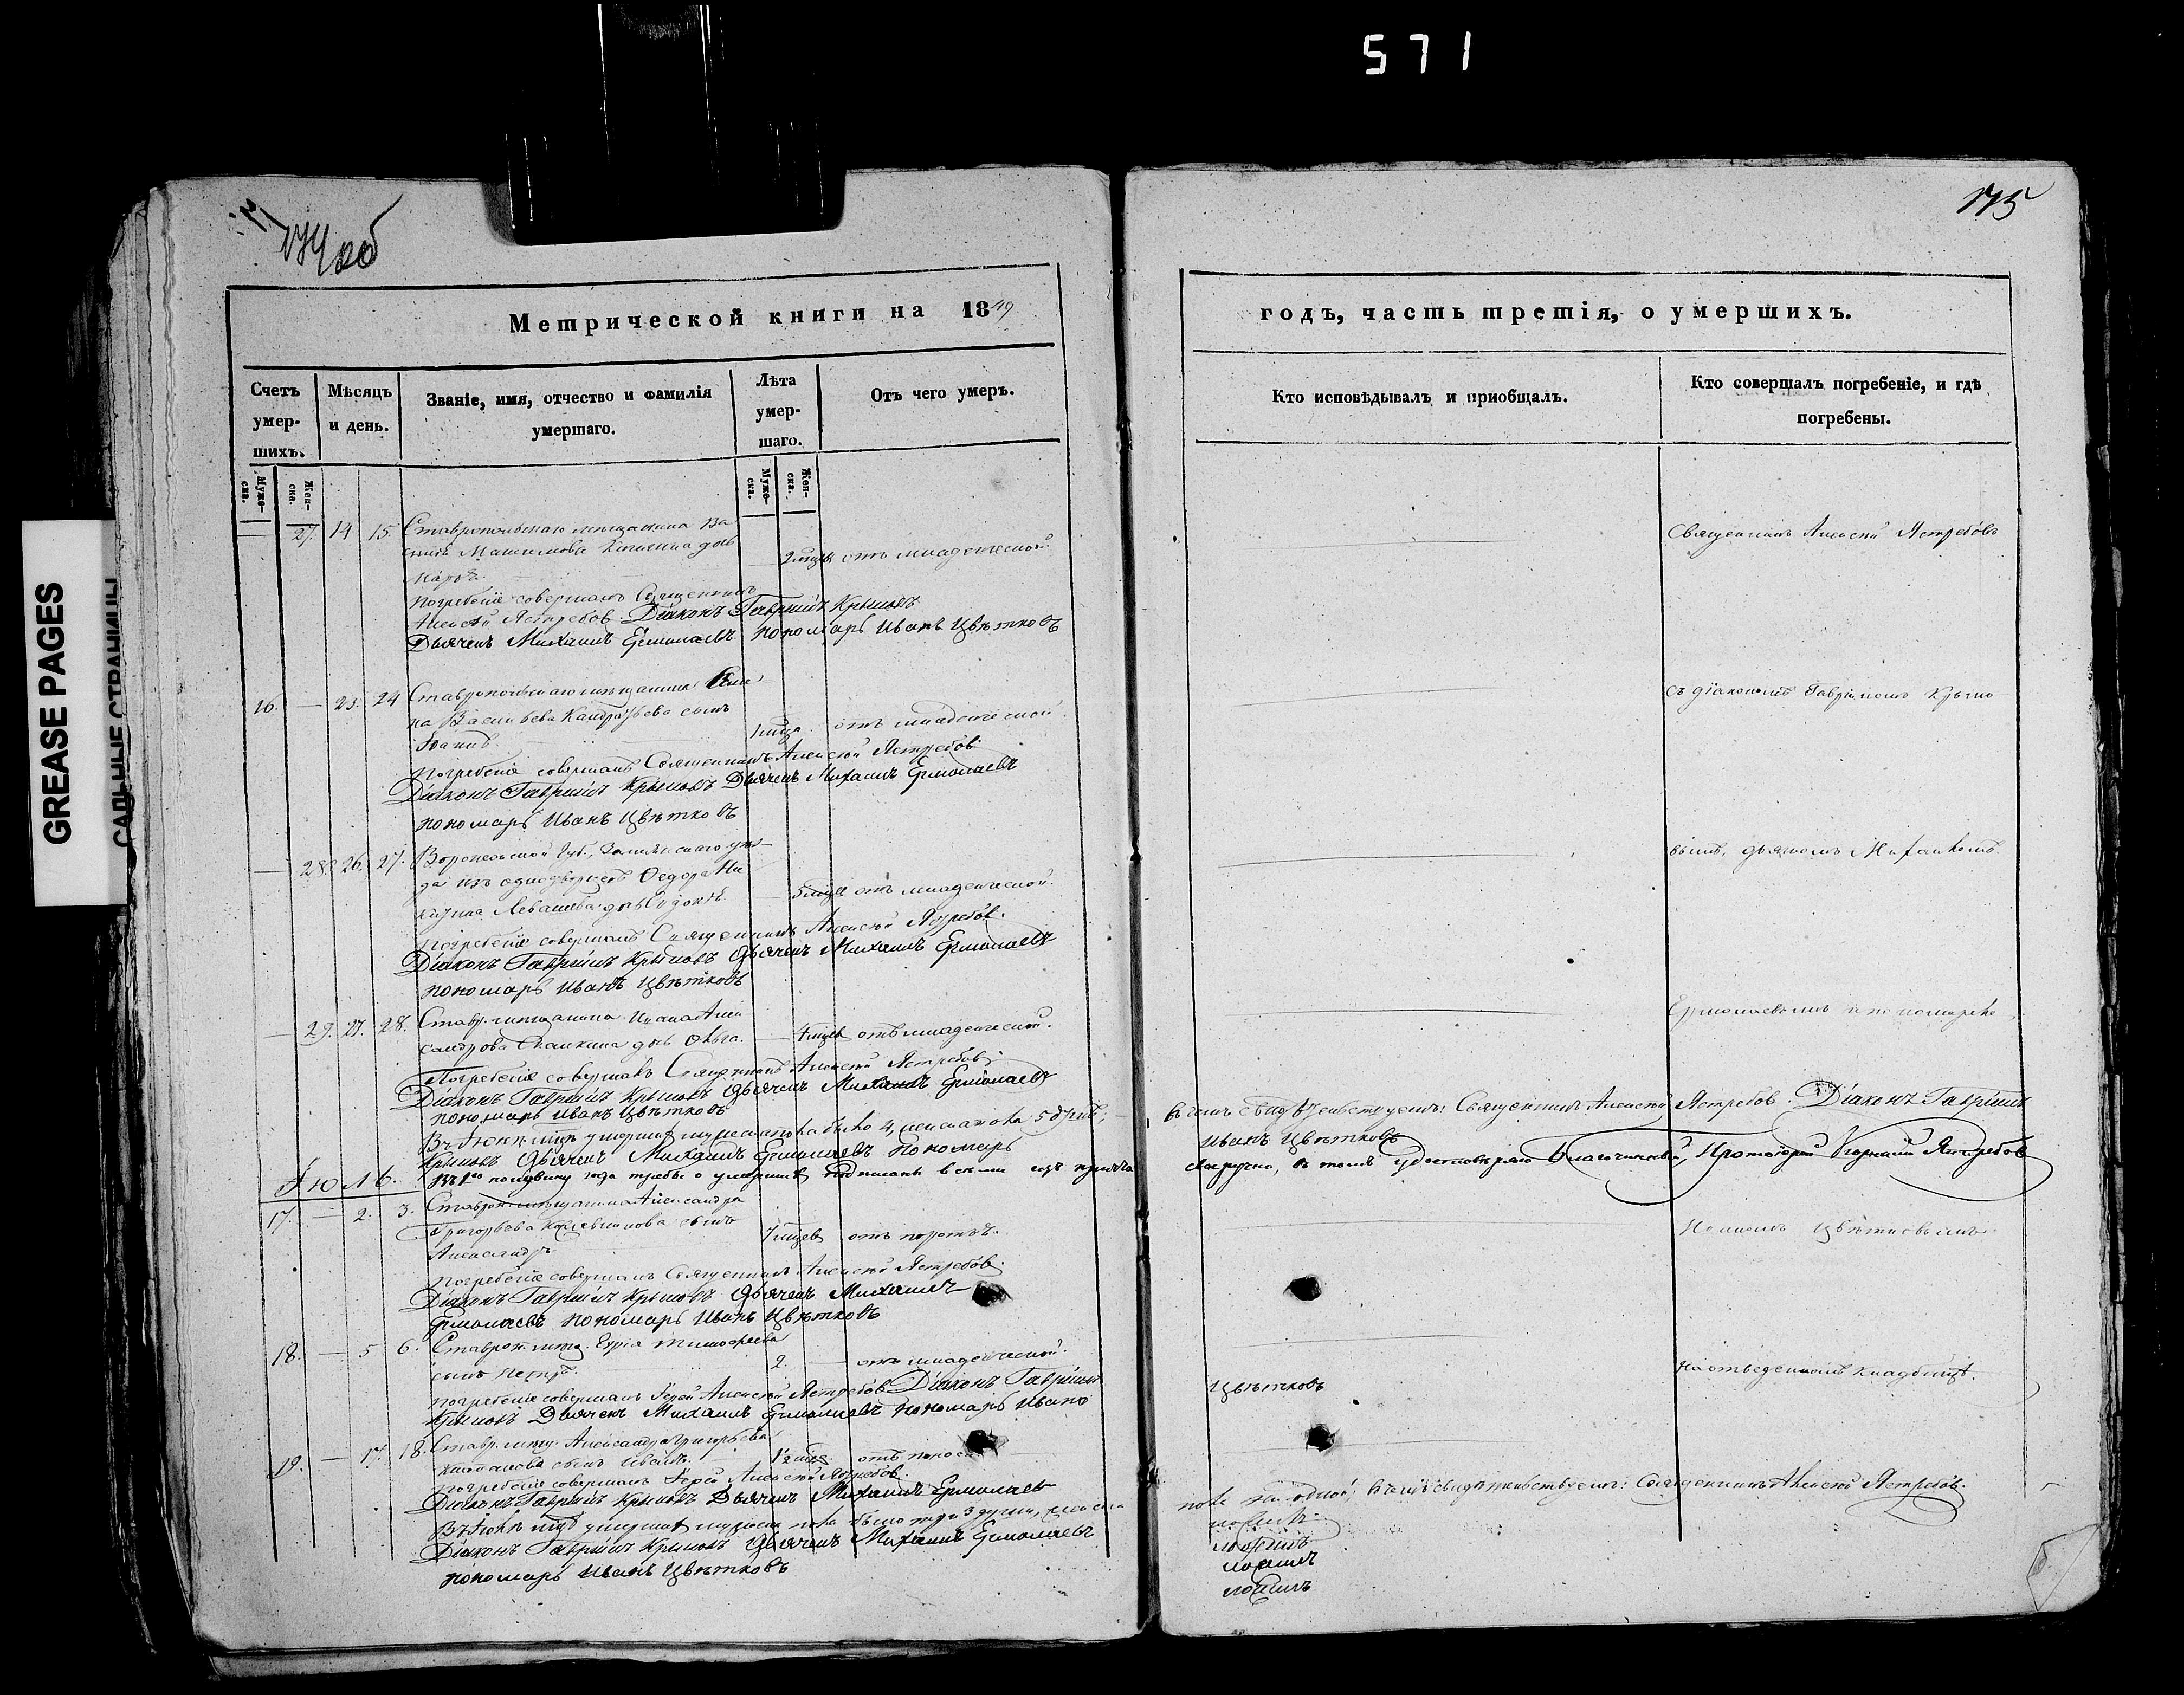 571
GREASE PAGES
САЛЬНЫЕ СТРАНИЦЫ
174 об
Метрической книги на 1849
Счетъ умер-
шихъ.
Муже-
ска.
Жен-
ска.
Мѣсяцъ
и день.
Званіе, имя, отчество и фамилія
умершаго.
Лѣта
умер-
шаго.
Муже-
ска.
Жен-
ска.
Отъ чего умеръ.
— 27. 14 15. Ставропольскаго мѣщанина Ва
Максимова дчь
2 мцев отъ младенческой
Погребеніе совершалъ Священникъ
Алексѣй Ястребовъ. Діаконъ Гавріилъ Крыловъ
Дьячекъ Михаилъ Ермолаевъ пономарь Иванъ Цвѣтковъ
16. — 23. 24 Ставропольскаго мѣщанина Семе
на Васильева Кандратьева сынъ
Іоаннъ. 1 мца. отъ младенческой.
Погребеніе совершалъ Священникъ Алексѣй Ястребовъ
Діаконъ Гавріилъ Крыловъ Дьячекъ Михаилъ Ермолаевъ
пономарь Иванъ Цвѣтковъ
— 28. 26. 27. Воронежской Губ., уѣз
да изъ однодворцевъ Ѳедора Ни
Левашева дчь
5 мцев отъ младенческой.
Погребеніе совершалъ Священникъ Алексѣй Ястребовъ.
Діаконъ Гавріилъ Крыловъ Дьячекъ Михаилъ Ермолаевъ
пономарь Иванъ Цвѣтковъ
— 29. 27. 28. Ставр. мѣщанина Алек
сандрова дчь Ольга. — 4 мцев отъ младенческой.
Погребеніе совершалъ Священникъ Алексѣй Ястребовъ
Діаконъ Гавріилъ Крыловъ Дьячекъ Михаилъ Ермолаевъ
пономарь Иванъ Цвѣтковъ
Въ Іюнѣ мцѣ умершихъ мужеска пола было 4, женска пола 5 душъ;
Крыловъ Дьячекъ Михаилъ Ермолаевъ Пономарь
Въ 1ю половину года требы о умершихъ подписаны всѣми сего причта
Іюль.
17. — 2. 3. Ставроп. мѣщанина Александра
Григорьева сынъ
Александръ 7 мцев отъ
Погребеніе совершалъ Священникъ Алексѣй Ястребовъ.
Діаконъ Гавріилъ Крыловъ Дьячекъ Михаилъ
Ермолаевъ пономарь Иванъ Цвѣтковъ
18. — 5 6. Ставроп. мѣщ. Тимофеева
сынъ Петръ. 2. — отъ младенческой.
Погребеніе совершалъ Іерей Алексѣй Ястребовъ Діаконъ Гавріилъ
Крыловъ Дьячекъ Михаилъ Ермолаевъ пономарь Иванъ
19. — 17. 18. Ставр. мѣщ. Александра Григорьева
сынъ Иванъ.
Погребеніе совершалъ Іерей Алексѣй Ястребовъ.
Діаконъ Гавріилъ Крыловъ Дьячекъ Михаилъ Ермолаевъ
мцѣ умершихъ мужеска пола было три 3 души, женска
Діаконъ Гавріилъ Крыловъ Дьячекъ Михаилъ Ермолаевъ
пономарь Иванъ Цвѣтковъ
175
годъ, часть третія, о умершихъ.
Кто исповѣдывалъ и пріобщалъ.
Кто совершалъ погребеніе, и гдѣ
погребены.
Священникъ Алексѣй Ястребовъ
съ діакономъ Гавріиломъ Крыло
вымъ, дьячкомъ Михаиломъ
Ермолаевымъ и пономаремъ
въ чемъ свидѣтельствуемъ: Священникъ Алексѣй Ястребовъ. Діаконъ Гавріилъ
Иванъ Цвѣтковъ
въ томъ удостовѣряю Благочинный, Протоіерей Ястребовъ
Иваномъ Цвѣтковымъ
на отведенномъ кладбищѣ.
Цвѣтковъ
пола ни одной; въ чемъ свидѣтельствуемъ: Священникъ Алексѣй Ястребовъ.